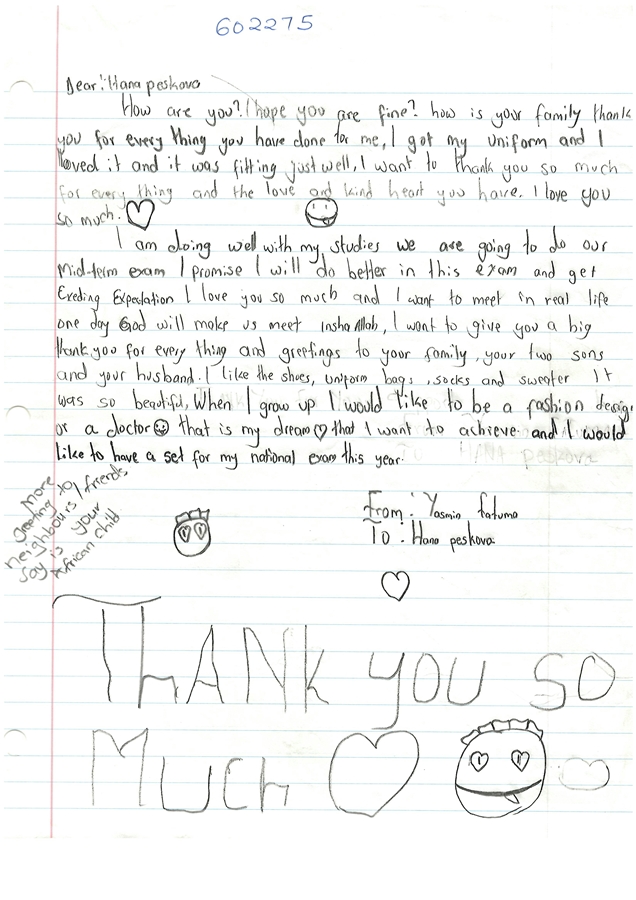 602275
Dear: Hana peskova
How are you? I hope you are fine? how is your family thank
you for every thing you have done for me, I got my uniform and I
loved it and it was fitting just well, I want to thank you so much
for every thing and the love and kind heart you have. I love you
so much.
I am doing well with my studies we are going to do our
Mid-term exam I promise I will do better in this exam and get
Exeding Expectation I love you so much and I want to meet in real life
one day God will make us meet inshaAllah, I want to give you a big
thank you for every thing and greetings to your family, your two sons
and your husband. I like the shoes, uniform bags, socks and sweater It
was so beautiful, When I grow up I would like to be a fashion design
or a doctor that is my dream that I want to achieve and I would
like to have a set for my national exam this year.
More
greeting to
neighbours / friends
say is your
African child
From: Yasmin fatuma
To: Hana peskova
THANK YOU SO
MUCH